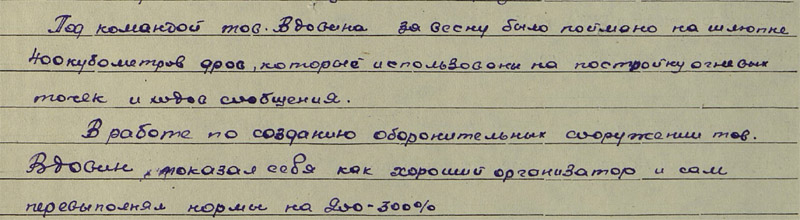 Под командой тов. Вдовина за весну было поймано на шлюпке
400 кубометров дров, которые использованы на постройку огневых
точек и ходов сообщения.
В работе по созданию оборонительных сооружении тов.
Вдовин, показал себя как хороший организатор и сам
перевыполнял нормы на 200-300%